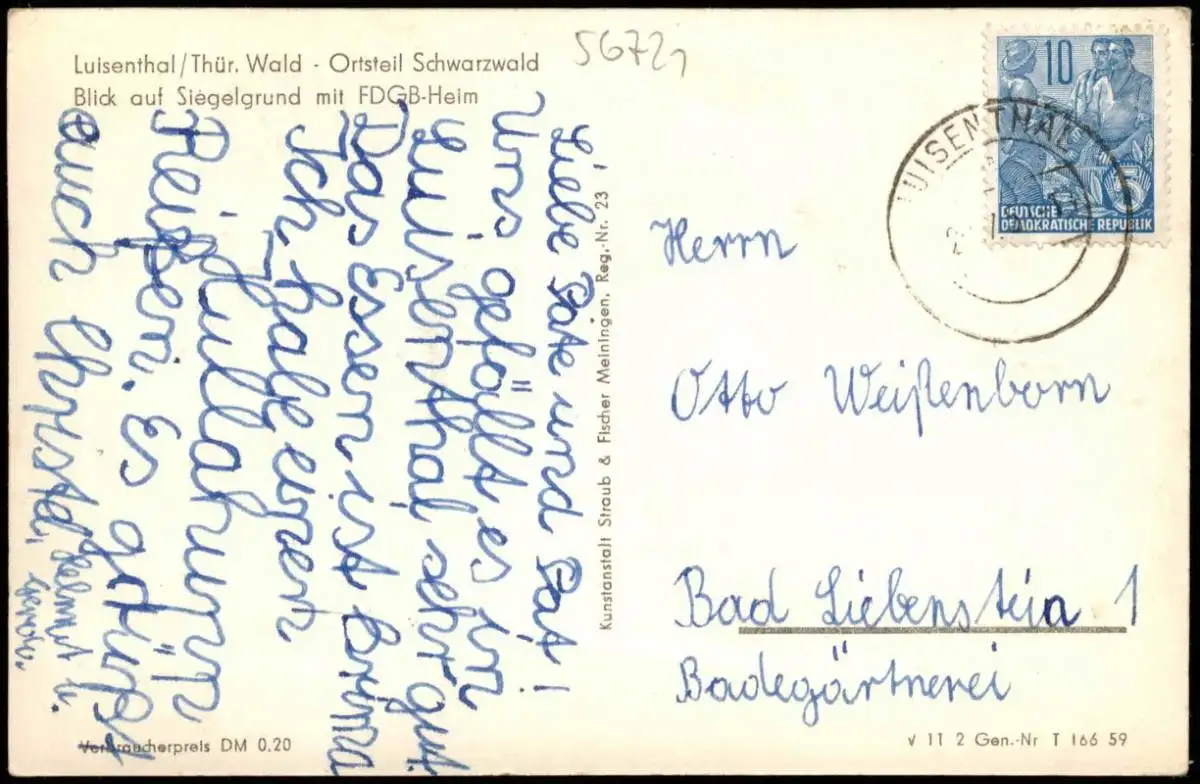 Luisenthal/Thür. Wald - Ortsteil Schwarzwald
Blick auf Siegelgrund mit FDGB-Heim
56721
Liebe Pate und Pat!
Uns gefällt es in
Luisenthal sehr gut.
Das Essen ist Brima
Ich habe einen
Fullahump
Reißen. Es grüßt
euch Christel,
Helmut u.
Kunstanstalt Straub & Fischer Meiningen, Reg.-Nr. 23 i
10
5
DEUTSCHE
DEMOKRATISCHE REPUBLIK
LUISENTHAL
Herrn
Otto Weißenborn
Bad Liebenstein 1
Badegärtnerei
Verbraucherpreis DM 0,20
V 11 2 Gen.-Nr T 166 59